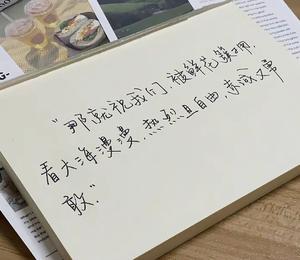 "那就祝我们，被鲜花簇拥，
看大海漫漫，热烈且自由，赤诚又勇
敢."